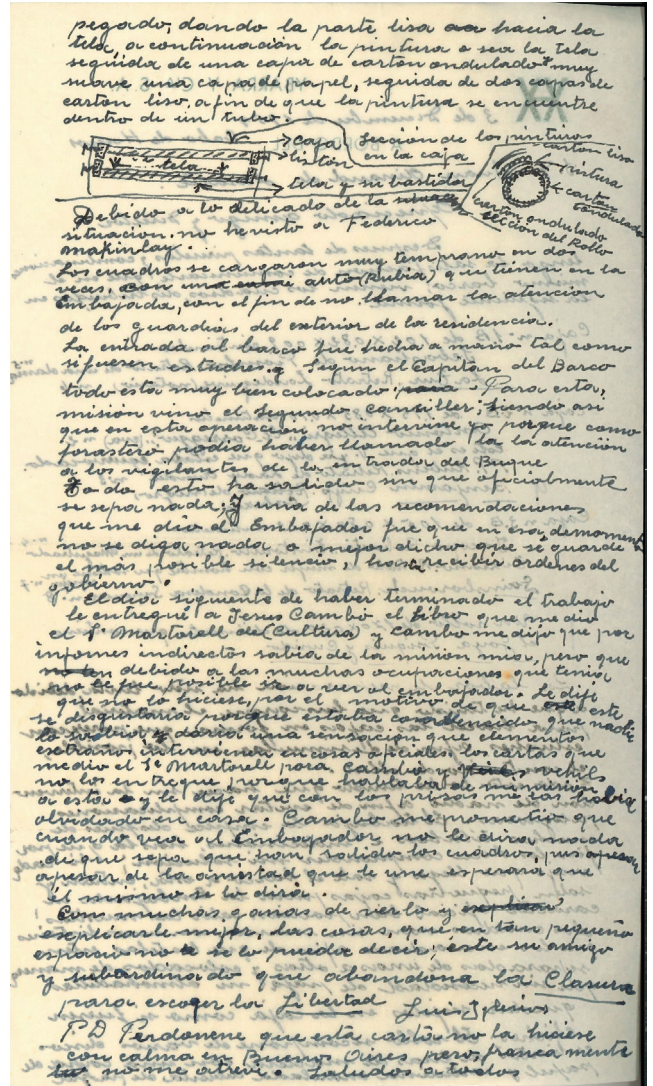 pegado, dando la parte lisa hacia la
tela, a continuación la pintura o sea la tela
seguida de una capa de carton ondulado muy
suave una capa de papel, seguida de dos capas de
carton liso, a fin de que la pintura se encuentre
dentro de un tubo.
caja
liston
tela
tela y su bastidor
Sección de las pinturas
en la caja
carton liso
pintura
carton
ondulado
carton ondulado
sección del Rollo
Debido a lo delicado de la
situacion no he visto a Federico
Makinlay.
Los cuadros se cargaron muy temprano en dos
veces, con una auto (Rubia) que tienen en la
Embajada, con el fin de no llamar la atencion
de los guardias del exterior de la residencia.
La entrada al barco fue hecha a mano tal como
si fuesen y segun el Capitan del Barco
todo esta muy bien colocado. Para esta,
mision vino el segundo canciller; siendo asi
que en esta operacion no intervine yo porque como
forastero podia haber llamado la la atención
a los vigilantes de la entrada del Buque
Todo esto ha salido sin que oficialmente
se sepa nada; y una de las recomendaciones
que me dio el Embajador fue que en esa, de momento
no se diga nada o mejor dicho que se guarde
el mas posible silencio, hasta recibir ordenes del
gobierno.
El dia siguiente de haber terminado el trabajo
le entregué a Jesus Cambó el Libro que me dio
el Sr Martorell de (Cultura) y Cambo me dijo que por
informes indirectos sabia de la mision mia, pero que
debido a las muchas ocupaciones que tenia
no le fue posible ir a ver al embajador. Le dije
que no lo hiciese, por el motivo de que este
se disgustaria porque estaba convencido que nadie
lo sabia y daria una sensacion que elementos
extraños, intervienen en cosas oficiales, las cartas que
me dio el Sr Martorell para Cambó y Vehils
no las entregue porque hablaba de mi mision
a esta y le dije que con las prisas me las habia
olvidado en casa. Cambo me prometio que
cuando vea al Embajador no le dira nada
de que sepa que han salido los cuadros, pues apesar
apesar de la amistad que le une esperará que
él mismo se lo dirá.
Con muchas ganas de verlo y
explicarle mejor, las cosas, que en tan pequeño
espacio no se lo pueda decir; este su amigo
y subordinado que abandona la Clasura
para escoger la Libertad Luis Iglesias
P.D Perdonene que esta carta no la hiciese
con calma en Buenos Aires pero, francamente
no me atreví. Saludos a todos